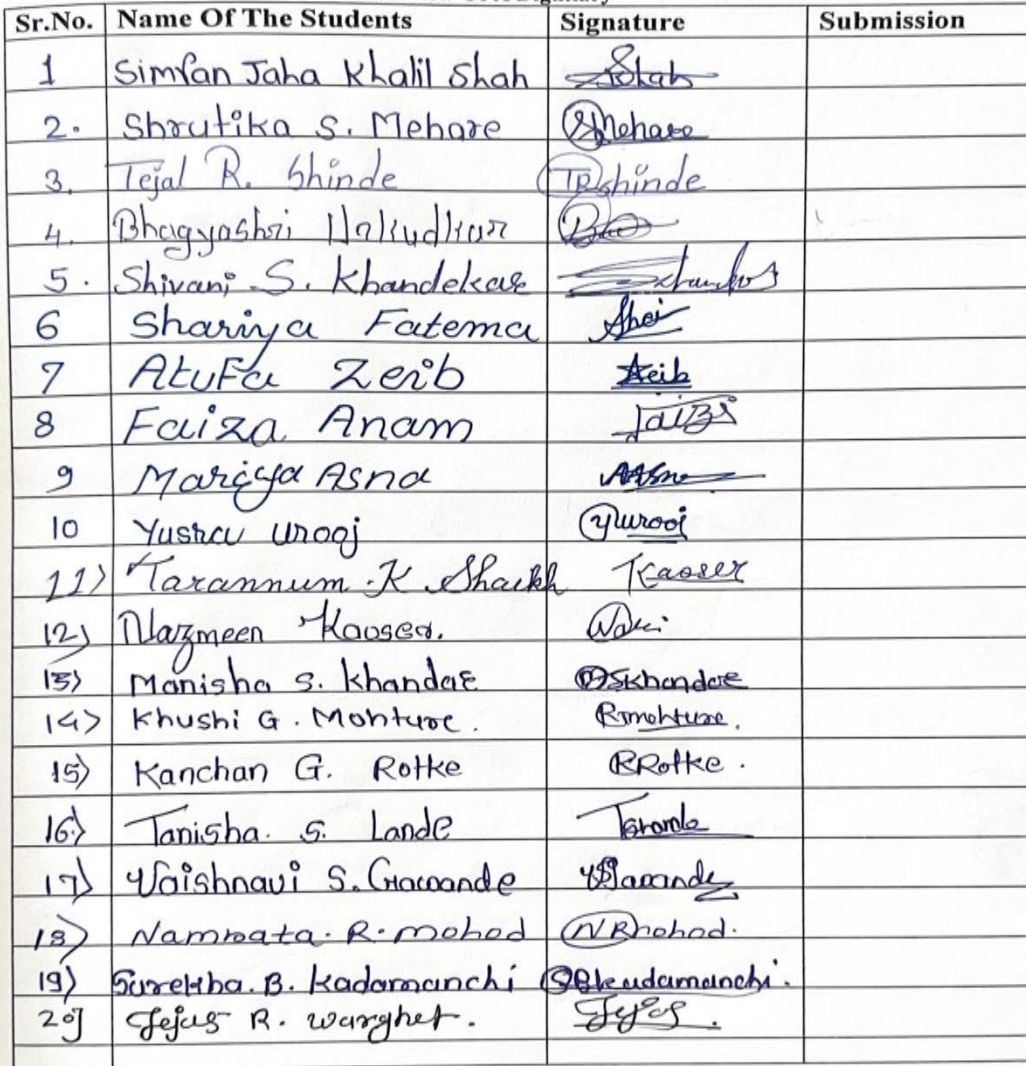 Sr.No. Name Of The Students Signature Submission
1 Simran Jaha Khalil Shah Shah
2. Shrutika S. Mehare SMehare
3. Tejal R. Shinde TRShinde
4. Bhagyashri
5. Shivani S. Khandekar
6 Shariya Fatema
7 Atufa Zeib Zeib
8 Faiza Anam Faiza
9 Mariya Asna AAsna
10 Yusra Urooj yurooj
11) Tarannum K Shaikh Kaoser
12) Nazmeen Kaoser.
13) Manisha S. Khandare MSKhandare
14) Khushi G. Mohture. Kmohture.
15) Kanchan G. Rotke KRotke.
16) Tanisha. S. Lande
17) Vaishnavi S. Gawande VSGawande
18) Namrata. R. mohod NRmohod.
19) Surekha. B. Kadamanchi SBkadamanchi.
20) Tejas R. Warghet. Tejas.